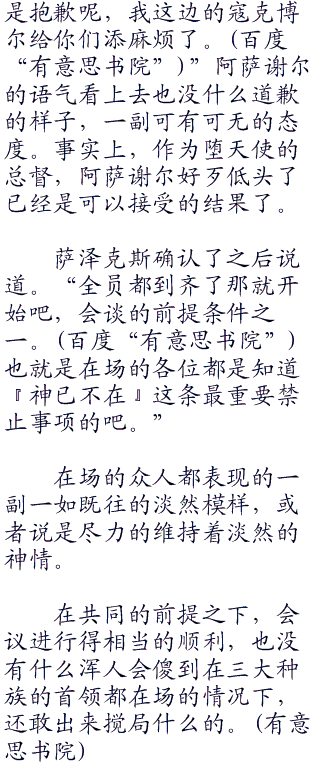 是抱歉呢，我这边的寇克博
尔给你们添麻烦了。(百度
“有意思书院”)”阿萨谢尔
的语气看上去也没什么道歉
的样子，一副可有可无的态
度。事实上，作为堕天使的
总督，阿萨谢尔好歹低头了
已经是可以接受的结果了。
萨泽克斯确认了之后说
道。“全员都到齐了那就开
始吧，会谈的前提条件之
一。(百度“有意思书院”)
也就是在场的各位都是知道
『神已不在』这条最重要禁
止事项的吧。”
在场的众人都表现的一
副一如既往的淡然模样，或
者说是尽力的维持着淡然的
神情。
在共同的前提之下，会
议进行得相当的顺利，也没
有什么浑人会傻到在三大种
族的首领都在场的情况下，
还敢出来搅局什么的。(有意
思书院)